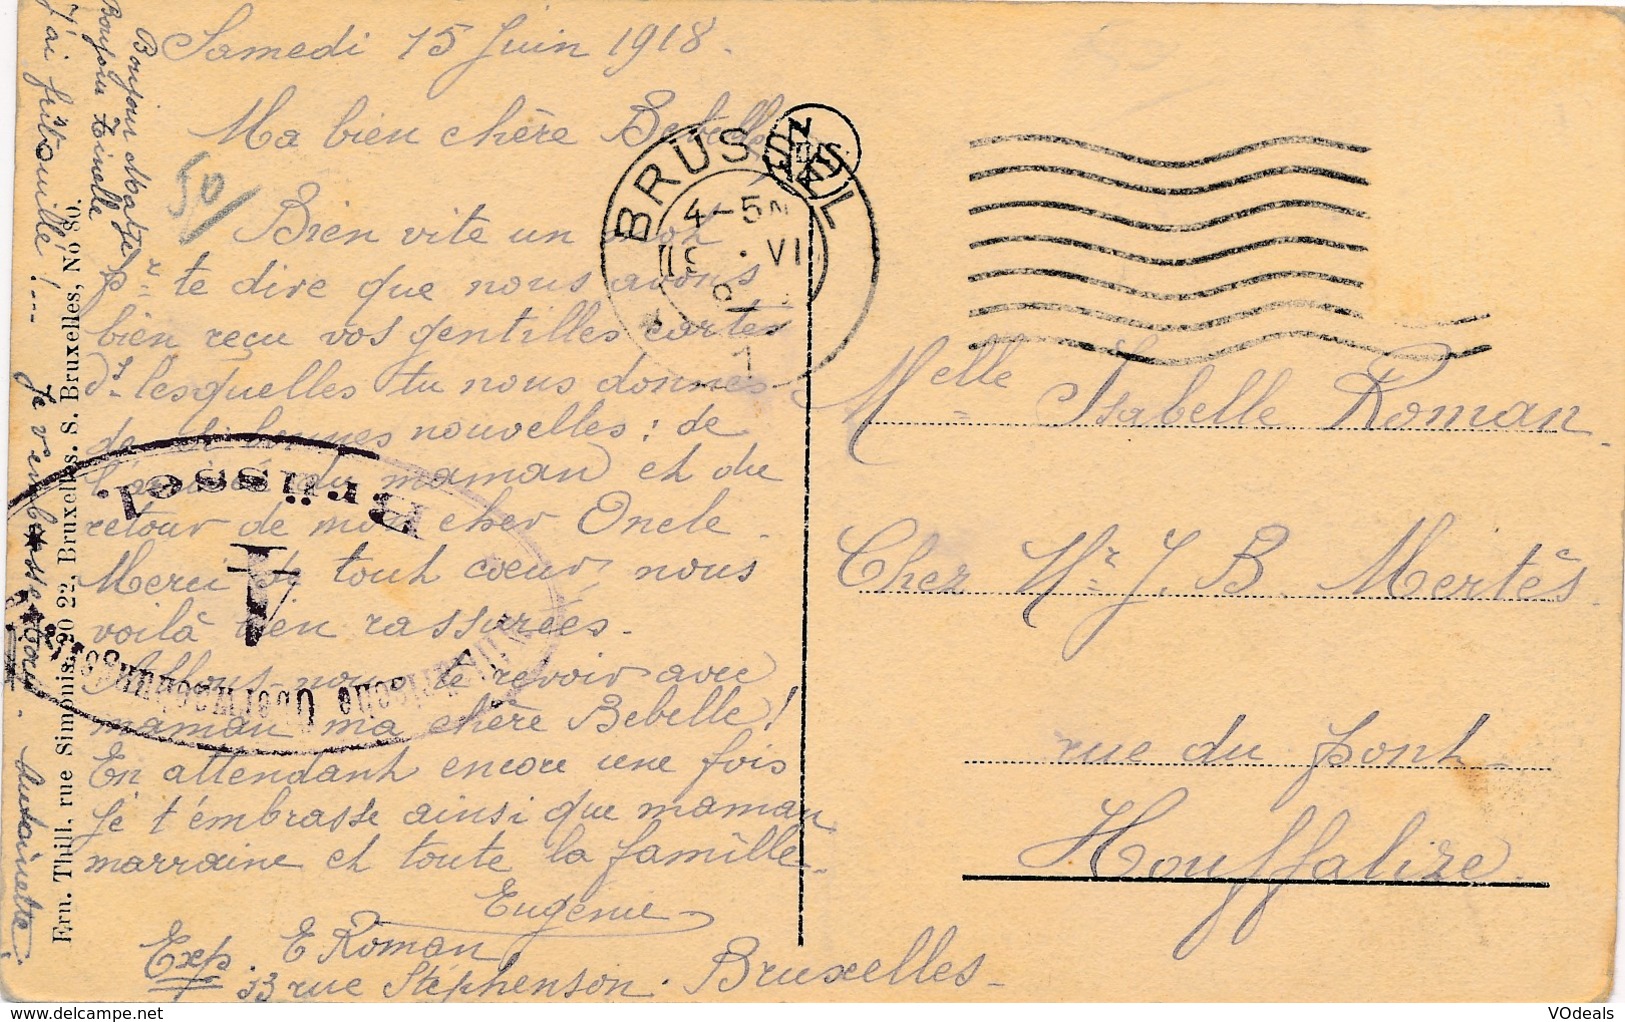 Samedi 15 Juin 1918.
Ma bien chère Bebelle,
50/
Bien vite un mot
pr te dire que nous avons
bien reçu vos gentilles cartes
ds lesquelles tu nous donnes
de si bonnes nouvelles : de
l'arrivée du maman et du
retour de mon cher Oncle.
Merci de tout coeur, nous
voilà bien rassurées.
Allons-nous te revoir avec
maman ma chère Bebelle !
En attendant encore une fois
je t'embrasse ainsi que maman
marraine et toute la famille.
Eugénie
Exp. E Roman
33 rue Stéphenson. Bruxelles.
Bonjour Marge
Bonjour Zinelle
J'ai fristouillé !...
Je vs embrasse tous.
Ern. Thill, rue Simonis, 20 22, Bruxelles. S. S. Bruxelles, No 80.
BRUSSEL
4-5N
VI
1
Brüssel.
Melle Isabelle Roman.
Chez Mr J. B. Mertès.
rue du Pont
Houffalize.
VOdeals